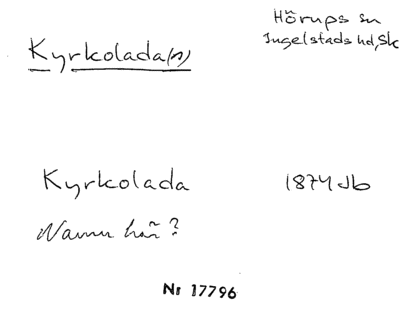 Hörups sn
Ingelstads hd, Sk
Kyrkolada(n)
Kyrkolada 1874 Jb
Namn här?
Nr 17796